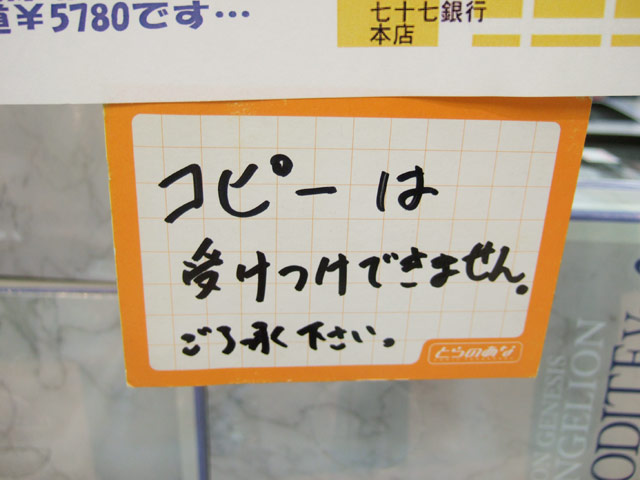 ¥5780です…
七十七銀行
本店
コピーは
受けつけできません。
ご了承下さい。
とらのあな
GENESIS